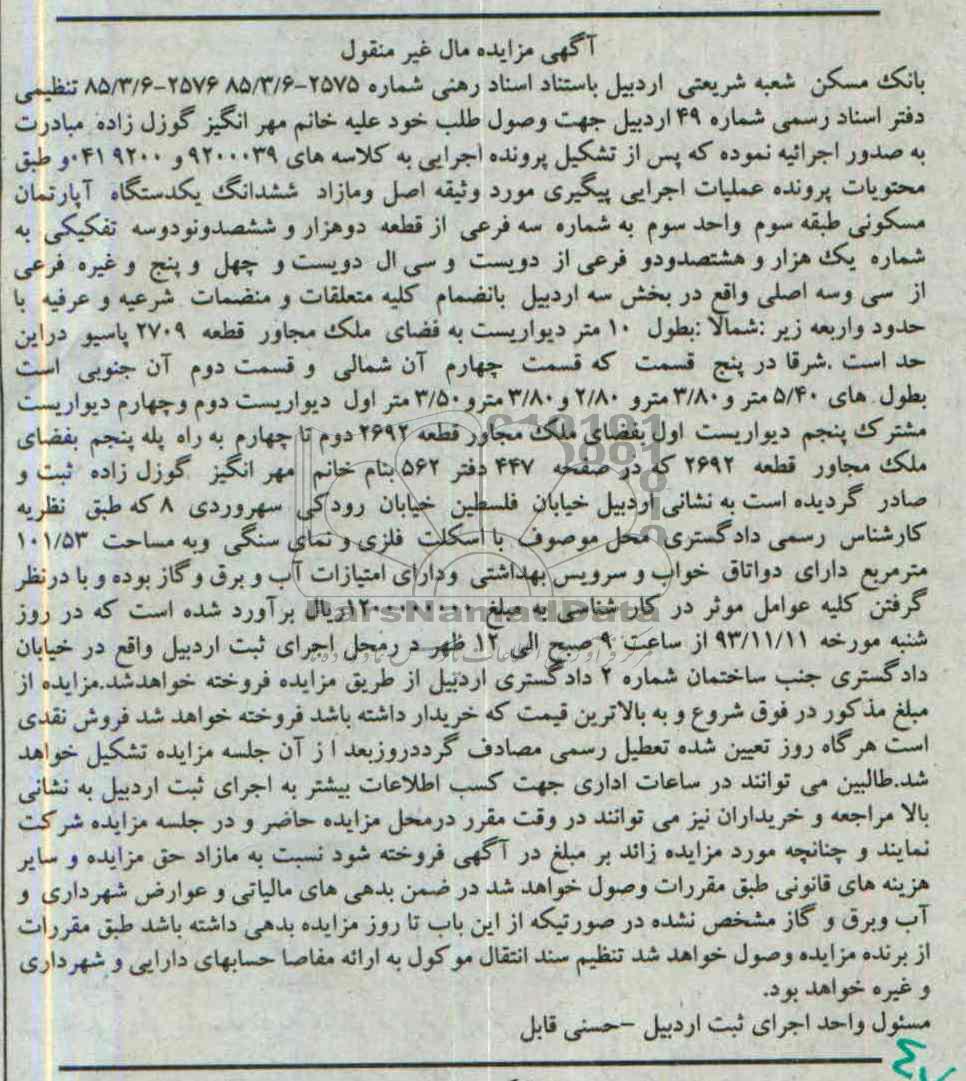 آگهی مزایده مال غیر منقول
بانک مسکن شعبه شریعتی اردبیل باستناد اسناد رهنی شماره ۲۵۷۵-۸۵/۳/۶ ۲۵۷۶-۸۵/۳/۶ تنظیمی
دفتر اسناد رسمی شماره ۴۹ اردبیل جهت وصول طلب خود علیه خانم مهر انگیز گوزل زاده مبادرت
به صدور اجرائیه نموده که پس از تشکیل پرونده اجرایی به کلاسه های ۹۲۰۰۰۳۹ و ۹۲۰۰۰۴۱ و طبق
محتویات پرونده عملیات اجرایی پیگیری مورد وثیقه اصل ومازاد ششدانگ یکدستگاه آپارتمان
مسکونی طبقه سوم واحد سوم به شماره سه فرعی از قطعه دوهزار و ششصدونودوسه تفکیکی به
شماره یک هزار و هشتصدودو فرعی از دویست و سی ال دویست و چهل و پنج و غیره فرعی
از سی وسه اصلی واقع در بخش سه اردبیل بانضمام کلیه متعلقات و منضمات شرعیه و عرفیه با
حدود واربعه زیر :شمالا :بطول ۱۰ متر دیواریست به فضای ملک مجاور قطعه ۲۷۰۹ پاسیو دراین
حد است .شرقا در پنج قسمت که قسمت چهارم آن شمالی و قسمت دوم آن جنوبی است
بطول های ۵/۴۰ متر و ۳/۸۰ مترو ۲/۸۰ و ۳/۸۰ مترو ۳/۵۰ متر اول دیواریست دوم وچهارم دیواریست
مشترک پنجم دیواریست اول بفضای ملک مجاور قطعه ۲۶۹۲ دوم تا چهارم به راه پله پنجم بفضای
ملک مجاور قطعه ۲۶۹۲ که در صفحه ۴۴۷ دفتر ۵۶۲ بنام خانم مهر انگیز گوزل زاده ثبت و
صادر گردیده است به نشانی اردبیل خیابان فلسطین خیابان رودکی سهروردی ۸ که طبق نظریه
کارشناس رسمی دادگستری محل موصوف با اسکلت فلزی و نمای سنگی وبه مساحت ۱۰۱/۵۳
مترمربع دارای دواتاق خواب و سرویس بهداشتی ودارای امتیازات آب و برق و گاز بوده و با درنظر
گرفتن کلیه عوامل موثر در کارشناسی به مبلغ ریال برآورد شده است که در روز
شنبه مورخه ۹۳/۱۱/۱۱ از ساعت ۹ صبح الی ۱۲ ظهر در محل اجرای ثبت اردبیل واقع در خیابان
دادگستری جنب ساختمان شماره ۲ دادگستری اردبیل از طریق مزایده فروخته خواهدشد.مزایده از
مبلغ مذکور در فوق شروع و به بالاترین قیمت که خریدار داشته باشد فروخته خواهد شد فروش نقدی
است هرگاه روز تعیین شده تعطیل رسمی مصادف گردد‌روزبعد ا ز آن جلسه مزایده تشکیل خواهد
شد.طالبین می توانند در ساعات اداری جهت کسب اطلاعات بیشتر به اجرای ثبت اردبیل به نشانی
بالا مراجعه و خریداران نیز می توانند در وقت مقرر درمحل مزایده حاضر و در جلسه مزایده شرکت
نمایند و چنانچه مورد مزایده زائد بر مبلغ در آگهی فروخته شود نسبت به مازاد حق مزایده و سایر
هزینه های قانونی طبق مقررات وصول خواهد شد در ضمن بدهی های مالیاتی و عوارض شهرداری و
آب وبرق و گاز مشخص نشده در صورتیکه از این باب تا روز مزایده بدهی داشته باشد طبق مقررات
از برنده مزایده وصول خواهد شد تنظیم سند انتقال موکول به ارائه مفاصا حسابهای دارایی و شهرداری
و غیره خواهد بود.
مسئول واحد اجرای ثبت اردبیل -حسنی قابل
ParsNamadData